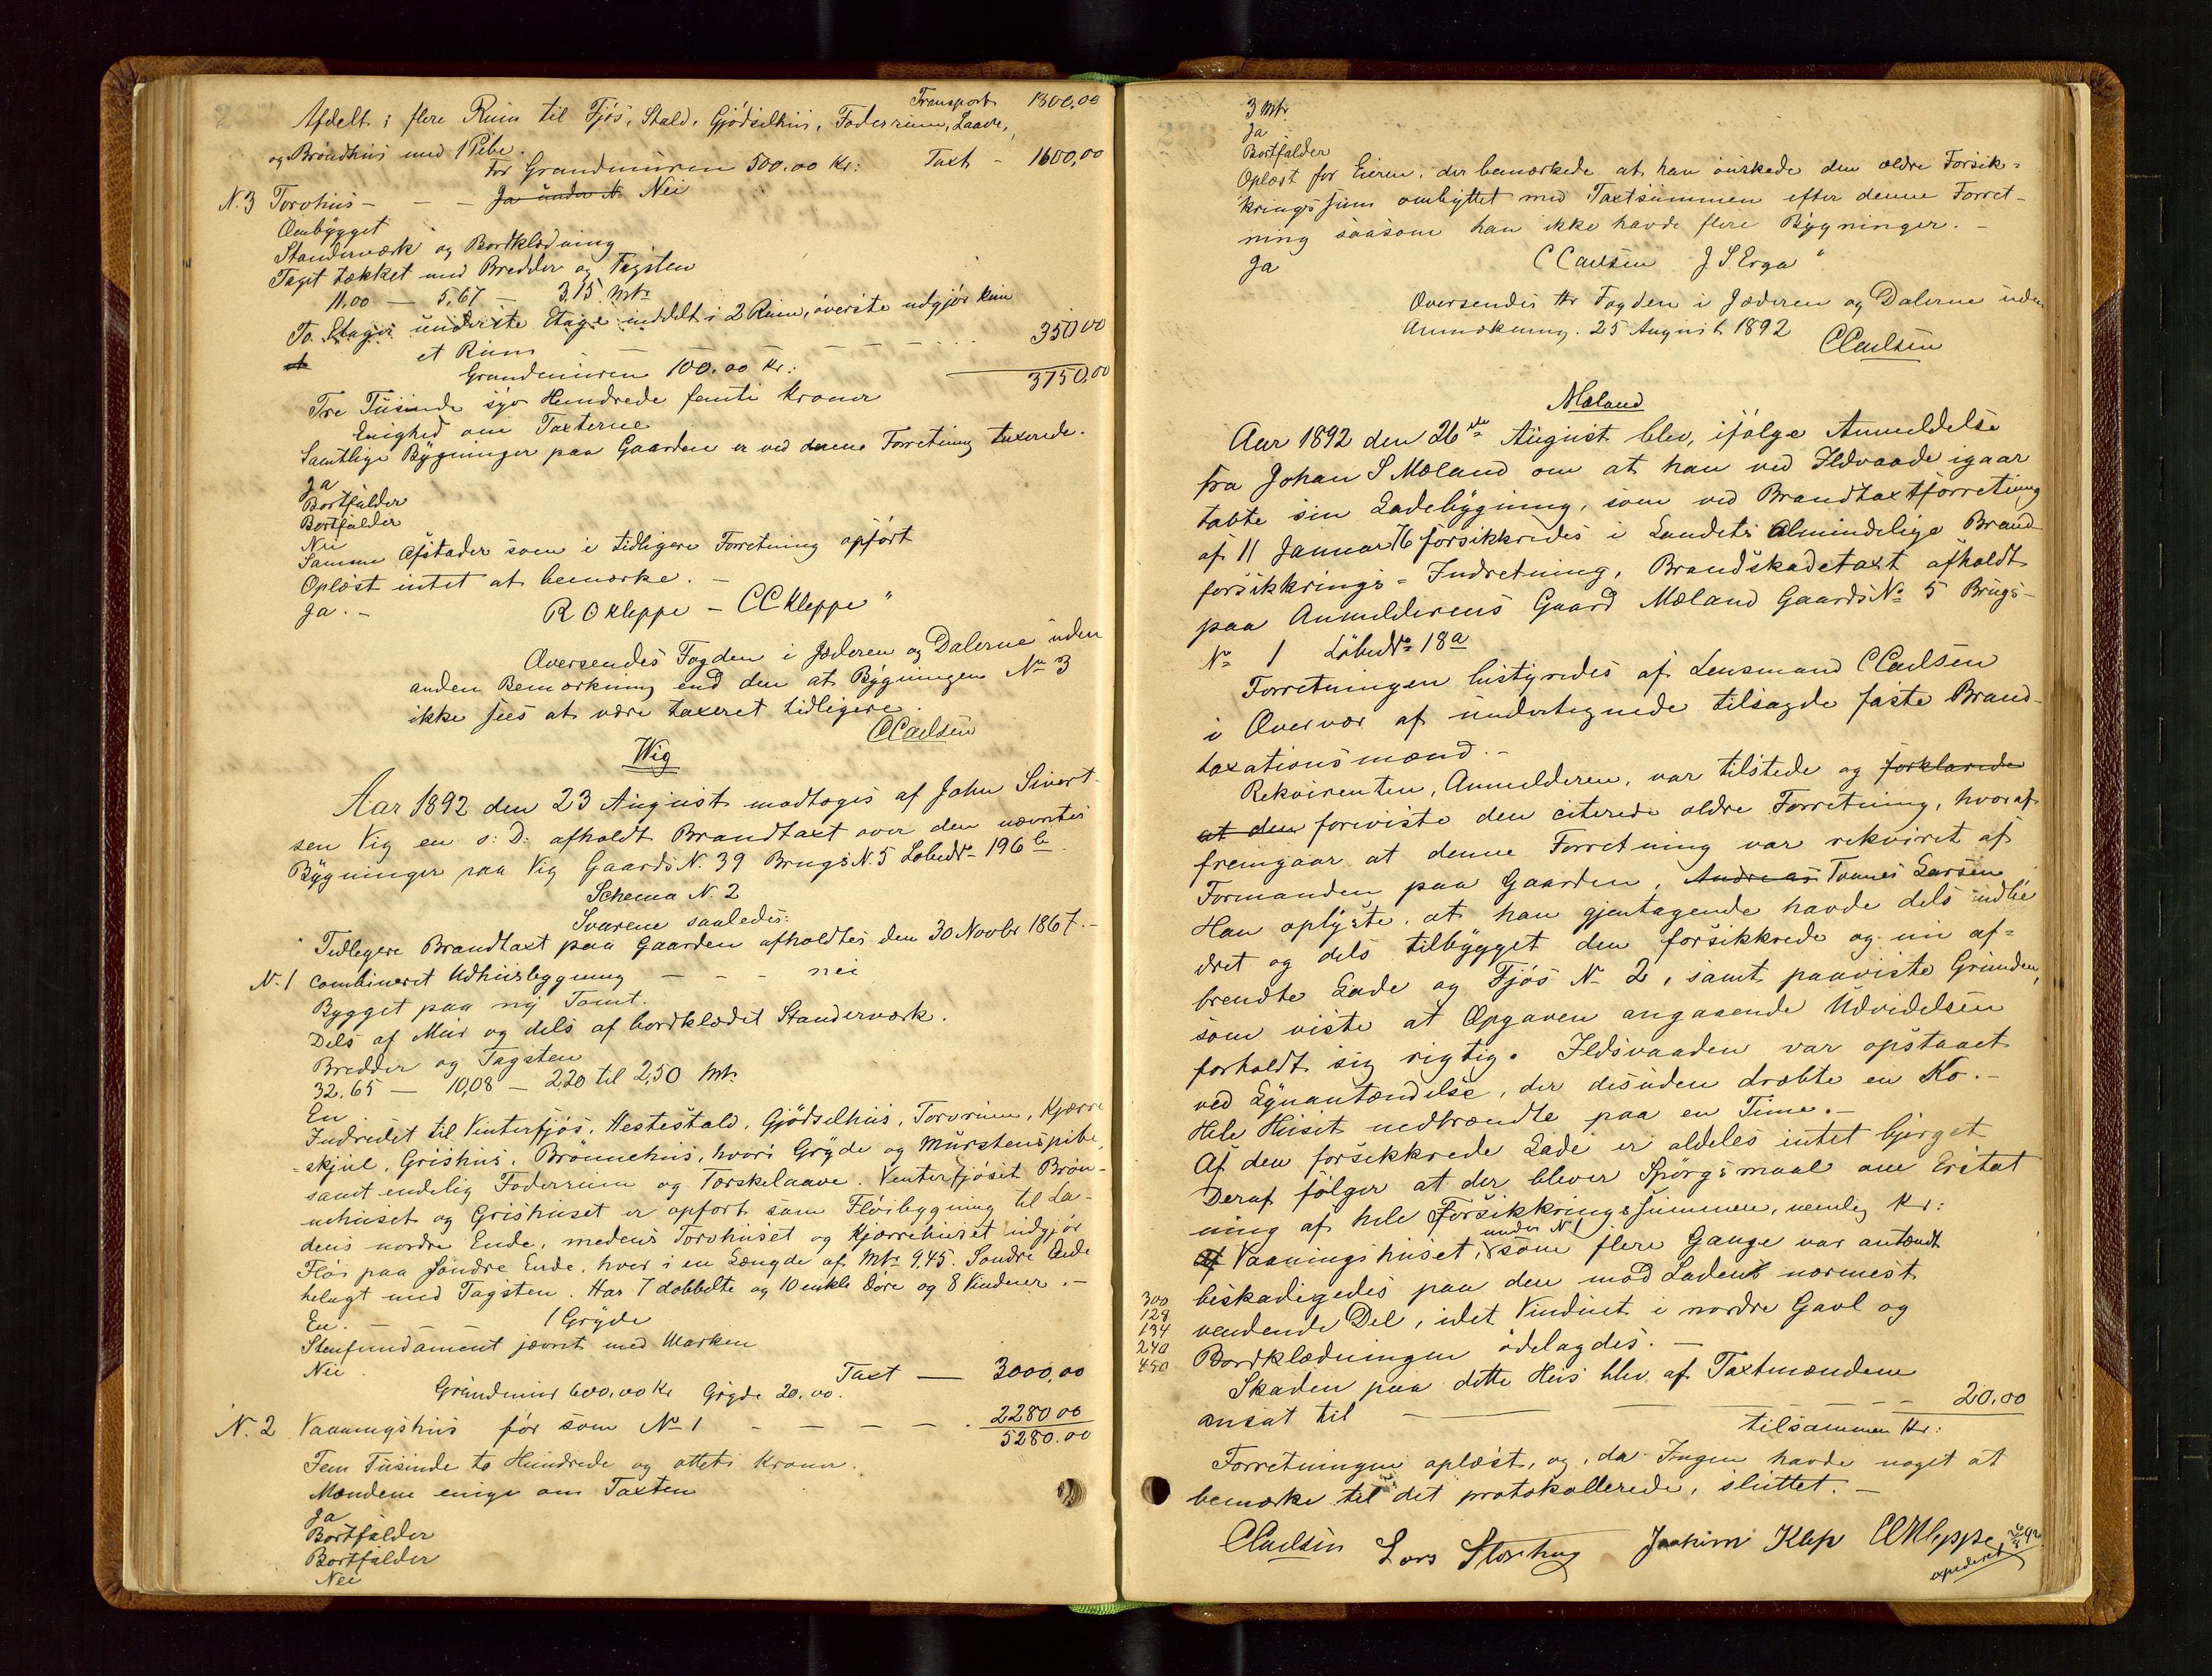 Transport 1800,00
Afdelt i flere Rum til Fjös, Stald, Gjödselhus, Foderrum, Laave,
og Bröndhus med 1 Pibe.
For Grundmuren 500.00 Kr: Taxt - 1600,00
N. 3 Torvhus - - - Ja under N. Nei
Ombygget
Standerværk og Bordklædning
Taget tækket med Bredder og Tagsten
11.00 - 5,67 - 3.15 Mtr
To Etager underste Etage inddelt i 2 Rum, överste udgjör kun
et Rum - - - - - - 350,00
Grundmuren 100.00 Kr: 3750,00
Tre Tusinde syv Hundrede femti Kroner
Enighed om Taxterne
Samtlige Bygninger paa Gaarden er ved denne Forretning taxerede.
Ja
Bortfalder
Bortfalder
Nei
Samme Afstader som i tidligere Forretning opfört
Oplæst intet at bemærke. -
Ja. - R O Kleppe - C C Kleppe "
Oversendes Fogden i Jæderen og Dalerne uden
anden Bemærkning end den at Bygningen No 3
ikke sees at være taxeret tidligere.
CCarlsen
Wig
Aar 1892 den 23 August modtoges af John Sivert-
sen Vig en s: D: afholdt Brandtaxt over den nævntes
Bygninger paa Vig Gaards N. 39 Brugs N. 5 Löbe No 196 b.
Schema N. 2
Svarene saaledes:
Tidligere Brandtaxt paa Gaarden afholdtes den 30 Novbr 1867. -
N. 1 Combineret Udhusbygning - - - nei
Bygget paa ny Tomt.
Dels af Mur og dels af bordklædet Standerværk.
Bredder og Tagsten
32.65 - 10,08 - 2.20 til 2,50 Mtr
En
Indredet til Vinterfjös, Hestestald, Gjödselhus, Torvrum, Kjærre
-skjul, Grishus, Brönnehus, hvori Gryde og Murstenspibe
samt endelig Foderrum og Tærskelaave. Venterfjöset Brön-
nehuset og Grishuset er opfort som Flöibygning til La-
dens nordre Ende, medens Torvhuset og Kjærrehuset udgjör
Flöi paa söndre Ende, hver i en Længde af Mtr 9,45. Sondre Ende
belagt med Tagsten. Har 7 dobbelte og 10 enkle Döre og 8 Vinduer. -
En. - - - 1 Gryde
Stenfundament jævnt med Marken
Nei. Taxt - 3000,00
Grundmur 600,00 Kr Gryde 20.00.
N. 2 Vaaningshus för som No 1 - - - - . 2280 00
5280.00
Fem Tusinde to Hundrede og otteti Kroner.
Mændene enige om Taxten
Ja
Bortfalder
Bortfalder
Nei
3 Mtr
Ja
Bortfalder
Oplæst for Eieren, der bemærkede at han önskede den ældre Forsik-
krings sum ombyttet med Taxtsummen efter denne Forret-
ning saasom han ikke havde flere Bygninger. -
Ja C Carlsen J S Erga "
Oversendes Hr Fogden i Jæderen og Dalerne uden
Anmærkning. 25 August 1892
CCarlsen
Mæland
Aar 1892 den 26de August blev, ifölge Anmeldelse
fra Johan S Mæland om at han ved Ildvaade igaar
tabte sin Ladebygning, som ved Brandtaxtforretning
af 11 Januar 76 forsikkredes i Landets Almindelige Brand
forsikkrings-Indretning, Brandskadetaxt afholdt
paa Anmelderens Gaard Mæland Gaards No 5 Brugs-
No 1 Löbe No 18a
Forretningen bestyredes af Lensmand CCarlsen
i Overvær af undertegnede tilsagde faste Brand-
taxationsmænd. -
Rekvirenten, Anmelderen, var tilstede og forklarede
at den foreviste den citerede ældre Forretning, hvoraf
fremgaar at denne Forretning var rekvireret af
Formanden paa Gaarden, Andreas Tönnes Larsen
Han oplyste, at han gjentagende havde dels udbe
dret og dels tilbygget den forsikkrede og nu af-
brendte Lade og Fjös No 2, samt paaviste Grunden,
som viste at Opgaven angaaende Udvidelsen
forholdt sig rigtig. Ildsvaaden var opstaaet
ved Lynantændelse, der desuden dræbte en Ko. -
Hele Huset nedbrændte paa en Time. -
Af den forsikkrede Lade er aldeles intet bjerget
Deraf fölger at der bliver Spörgsmaal om Erstat
ning af hele Forsikkringssummen, nemlig Kr:
Af Vaaningshuset, under No 1 som flere Gange var antændt
beskadigedes paa den mod Laden nærmest
vendende Del, idet Vinduet i nordre Gavl og
Bordklædningen ödelagdes. -
300
128
134
240
450
Skaden paa dette Hus blev af Taxtmændene
ansat til - - - - - 20.00
tilsammen Kr:
Forretningen oplæst, og, da Ingen havde noget at
bemærke til det protokollerede, sluttet. -
CCarlsen Lars Storhug Joakim Klep CC Kleppe
expederet 26/8 92